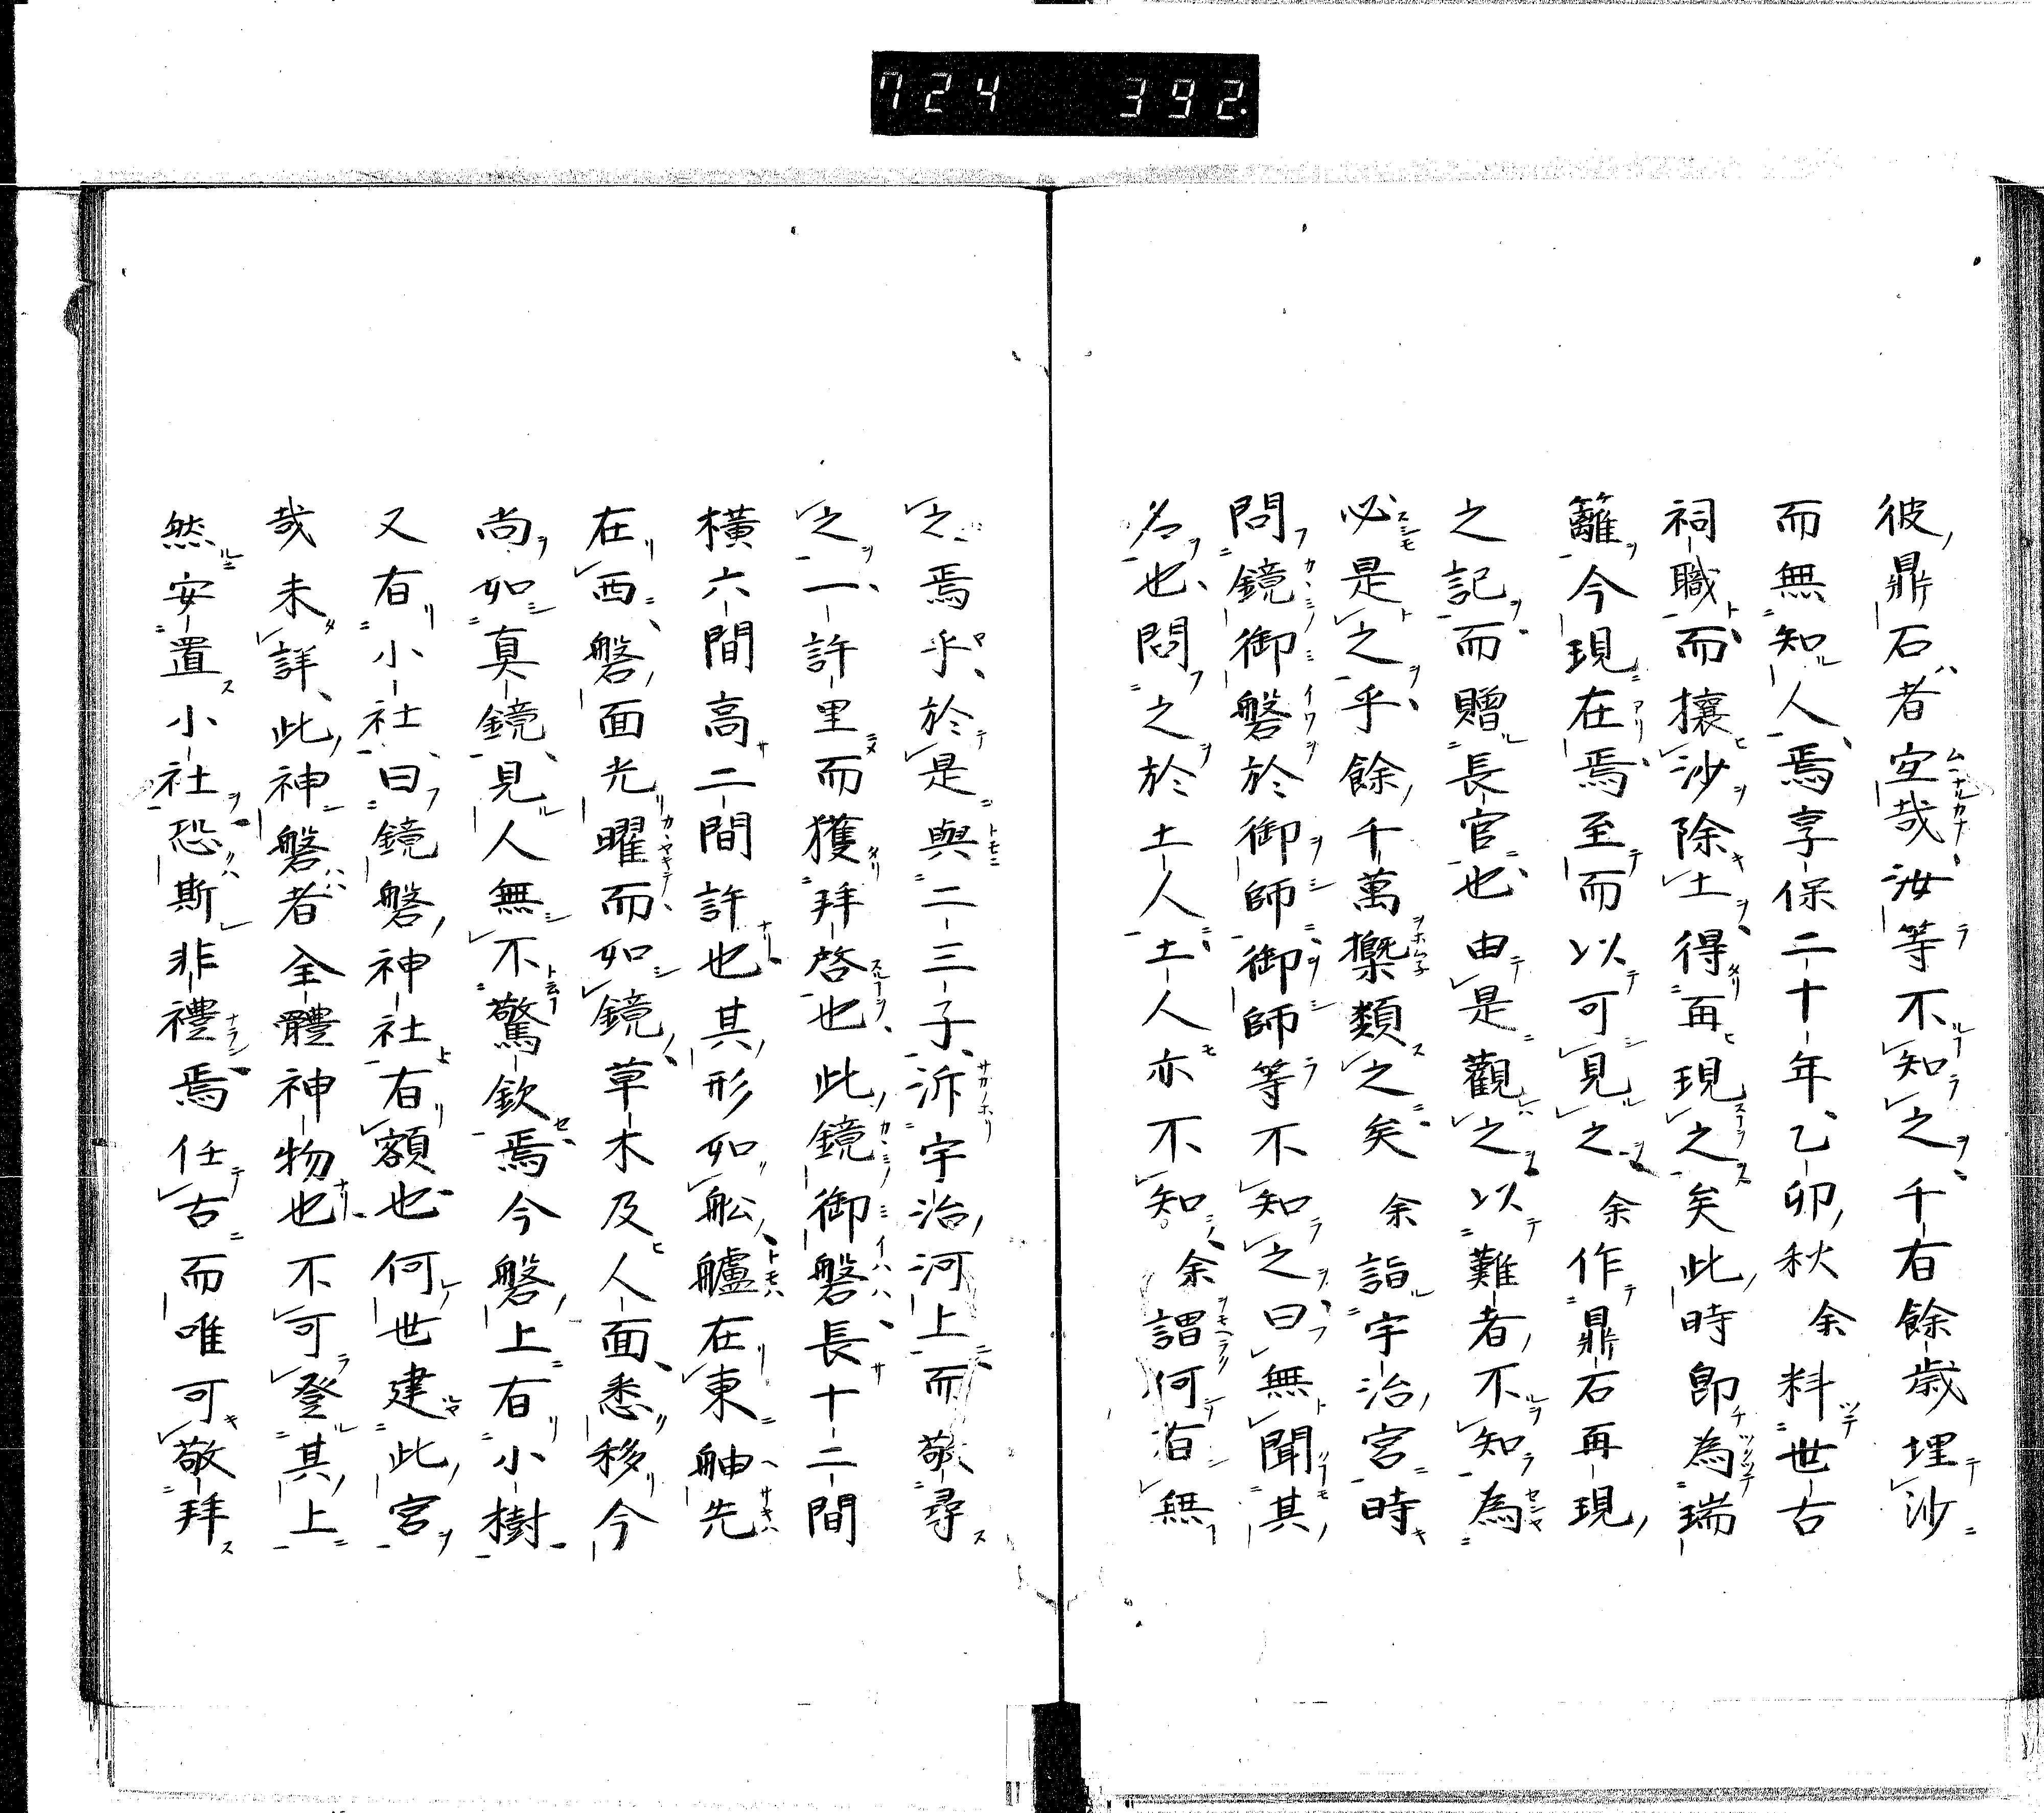 724 392.
彼鼎石者宜哉汝等不知之千有餘歲埋沙
而無知人焉享保二十年乙卯秋余料世古
祠職而攘沙除土得再現之矣此時卽為瑞
籬今現在焉至而以可見之余作鼎石再現
之記而贈長官也由是觀之以難者不知為
必是之乎餘千萬槩類之矣余詣宇治宮時
問鏡御磐於御師御師等不知之曰無聞其
名也問之於土人土人亦不知余謂何有無
之焉乎於是與二三子泝宇治河上而敬尋
之一許里而獲拜啓也此鏡御磐長十二間
橫六間高二間許也其形如舩艫在東舳先
在西磐面光曜而如鏡草木及人面悉移今
尚如真鏡見人無不驚欽焉今磐上有小樹
又有小社曰鏡磐神社有額也何世建此宮
哉未詳此神磐者全體神物也不可登其上
然安置小社恐斯非禮焉任古而唯可敬拜